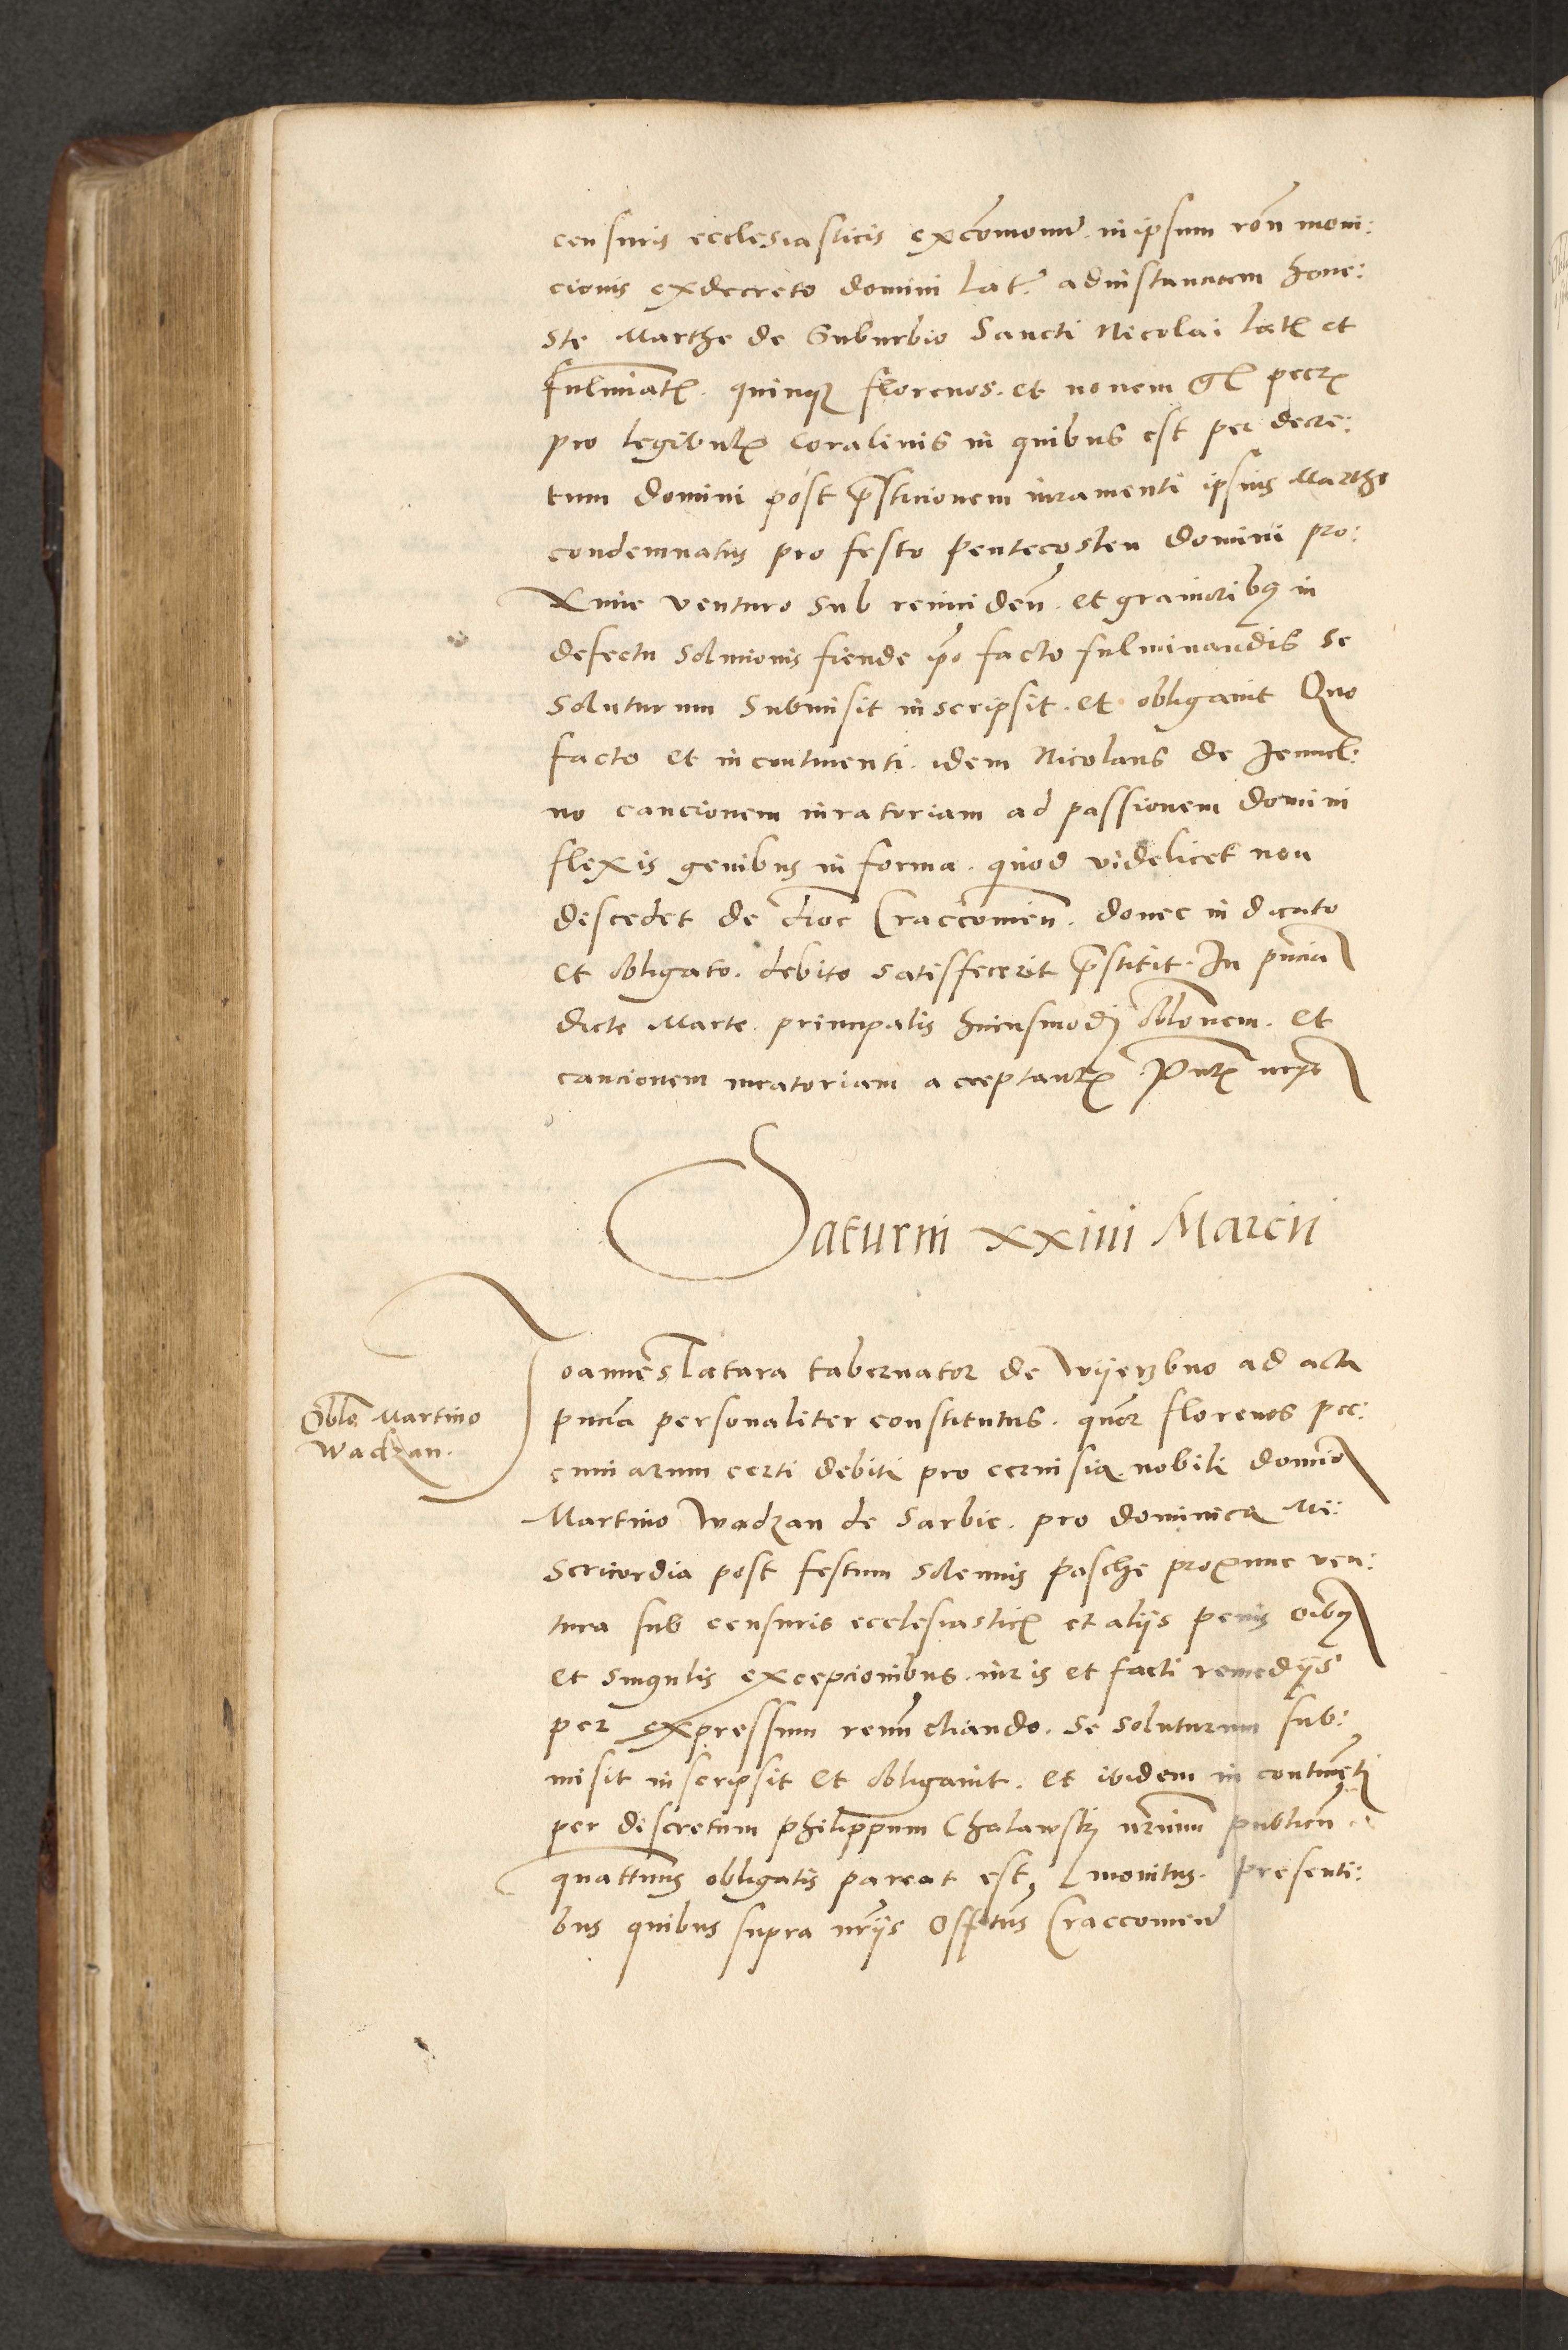 censuris ecclesiasticis excōmonir. in ipsum rōn moni:
cionis ex decreto domini lat. ad instanciam hone:
ste Marthe de Suburbio Sancti Nicolai lat et
fulminat. quinqz florenos. et novem gr pecz
pro legibulis coralinis in quibus est per decre:
tum domini post p̄sticionem iuramenti ipsius Marthe
condemnatus pro festo Pentecosten domini pro:
xime venturo sub reincideñ. et gravioribz in
defectu solucionis fiende ip̄o facto fulminandis se
soluturum submisit inscripsit. et obligavit Quo
facto et in continenti. idem Nicolaus de
no caucionem iuratoriam ad passionem domini
flexis genibus in forma. quod videlicet non
descedet de dioc Craccovieñ. donec in dicato
et obligato. debito satisfecerit p̄stitit. In pn̄cia
dicte Marte. principalis huiusmodj obl̄onem. et
caucionem iuratoriam acceptantz. Pntz nrys
Saturni xxiiii Marcii
Joannes latara tabernator de Wyerzbno ad acta
pn̄cia personaliter constitutus. quor florenos pec:
Obl̄o Martino
Wadzan.
cuniarum certi debiti pro cervisia nobili domino
Martino Wadzan de Sarbie. pro dominica Mi:
sericordia post festum solennis Pasche proxime ven:
tura sub censuris ecclesiasticz et aliis penis oībz
et singulis excepcionibus. iuris et facti remedys
per expressum renunctiando. se soluturum sub:
misit inscripsit et obligavit. et ibidem in continēti
per discretum Philippum Chalawskj nr̄ium publicū
quattinus obligatis pareat est, monitus. presenti:
bus quibus supra nr̄ijs Offitus Craccovien